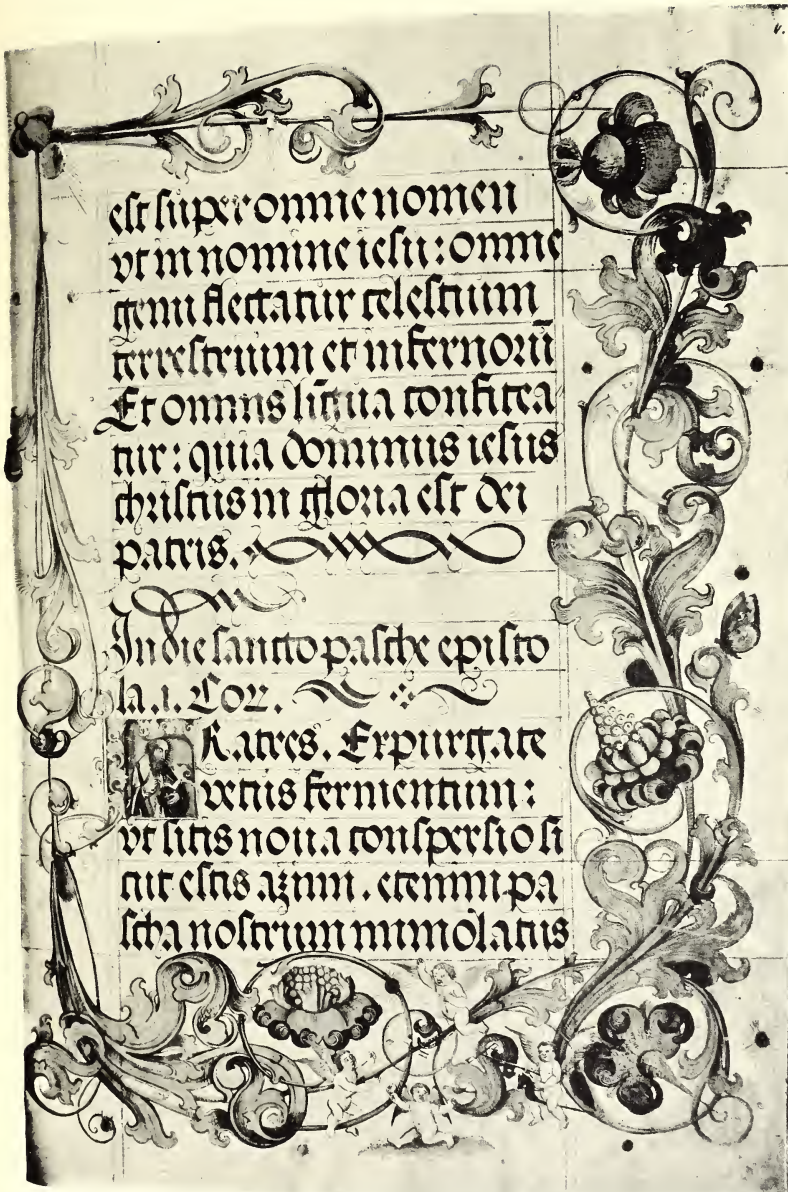 est super omne nomen
vt in nomine iesu : omne
genu flectatur celestium
terrestrium et infernorū
Et omnis līgua confitea
tur : quia dominus iesus
christus in gloria est dei
patris.
In die sancto pasche episto
la .1. Cor.
FRatres. Expurgate
vetus fermentum :
vt sitis noua conspersio si
cut estis azimi. etenim pa
scha nostrum immolatus